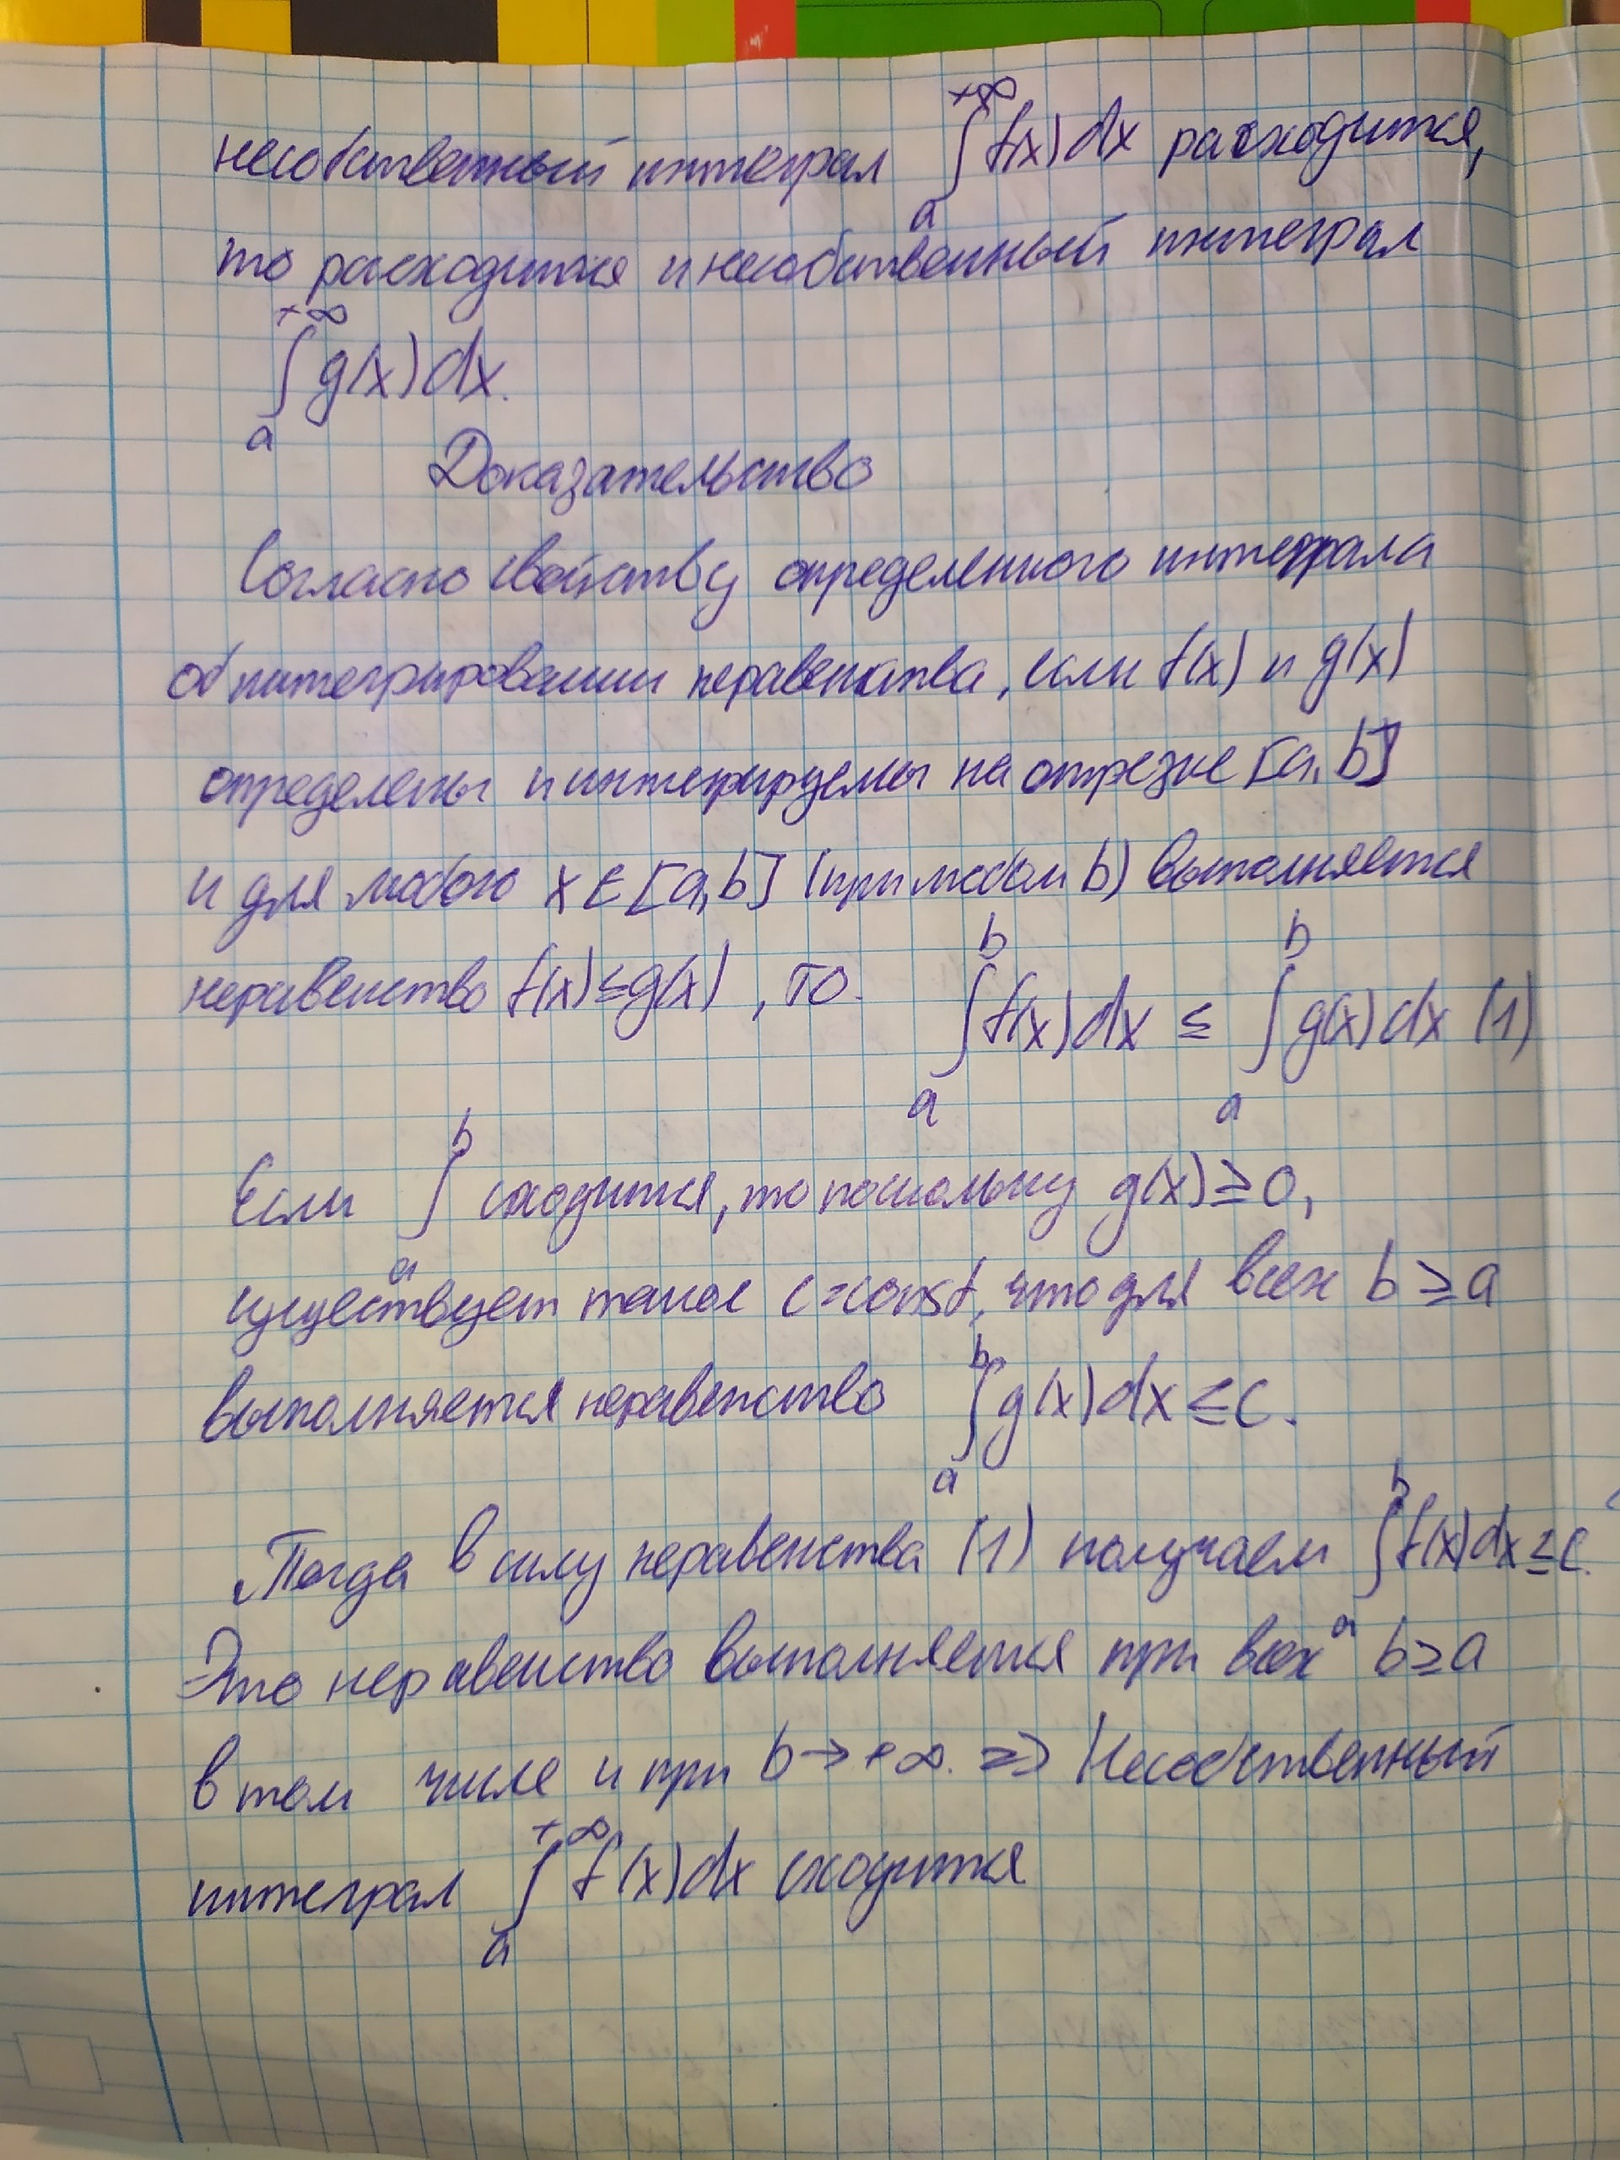 несобственный интеграл ∫ₐ^{+∞} f(x)dx расходится,
то расходится и несобственный интеграл
∫ₐ^{+∞} g(x)dx.
Доказательство
Согласно свойству определенного интеграла
об интегрировании неравенства, если f(x) и g(x)
определены и интегрируемы на отрезке [a,b]
и для любого x∈[a,b] (при любом b) выполняется
неравенство f(x)≤g(x), то. ∫ₐᵇ f(x)dx ≤ ∫ₐᵇ g(x)dx (1)
Если ∫ₐᵇ сходится, то поскольку g(x)≥0,
существует такое c=const, что для всех b≥a
выполняется неравенство ∫ₐᵇ g(x)dx≤c.
Тогда в силу неравенства (1) получаем ∫ₐᵇ f(x)dx≤c.
Это неравенство выполняется при всех b≥a
в том числе и при b→+∞. => Несобственный
интеграл ∫ₐ^{+∞} f(x)dx сходится